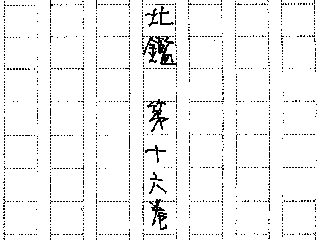 北鑑 第十六巻